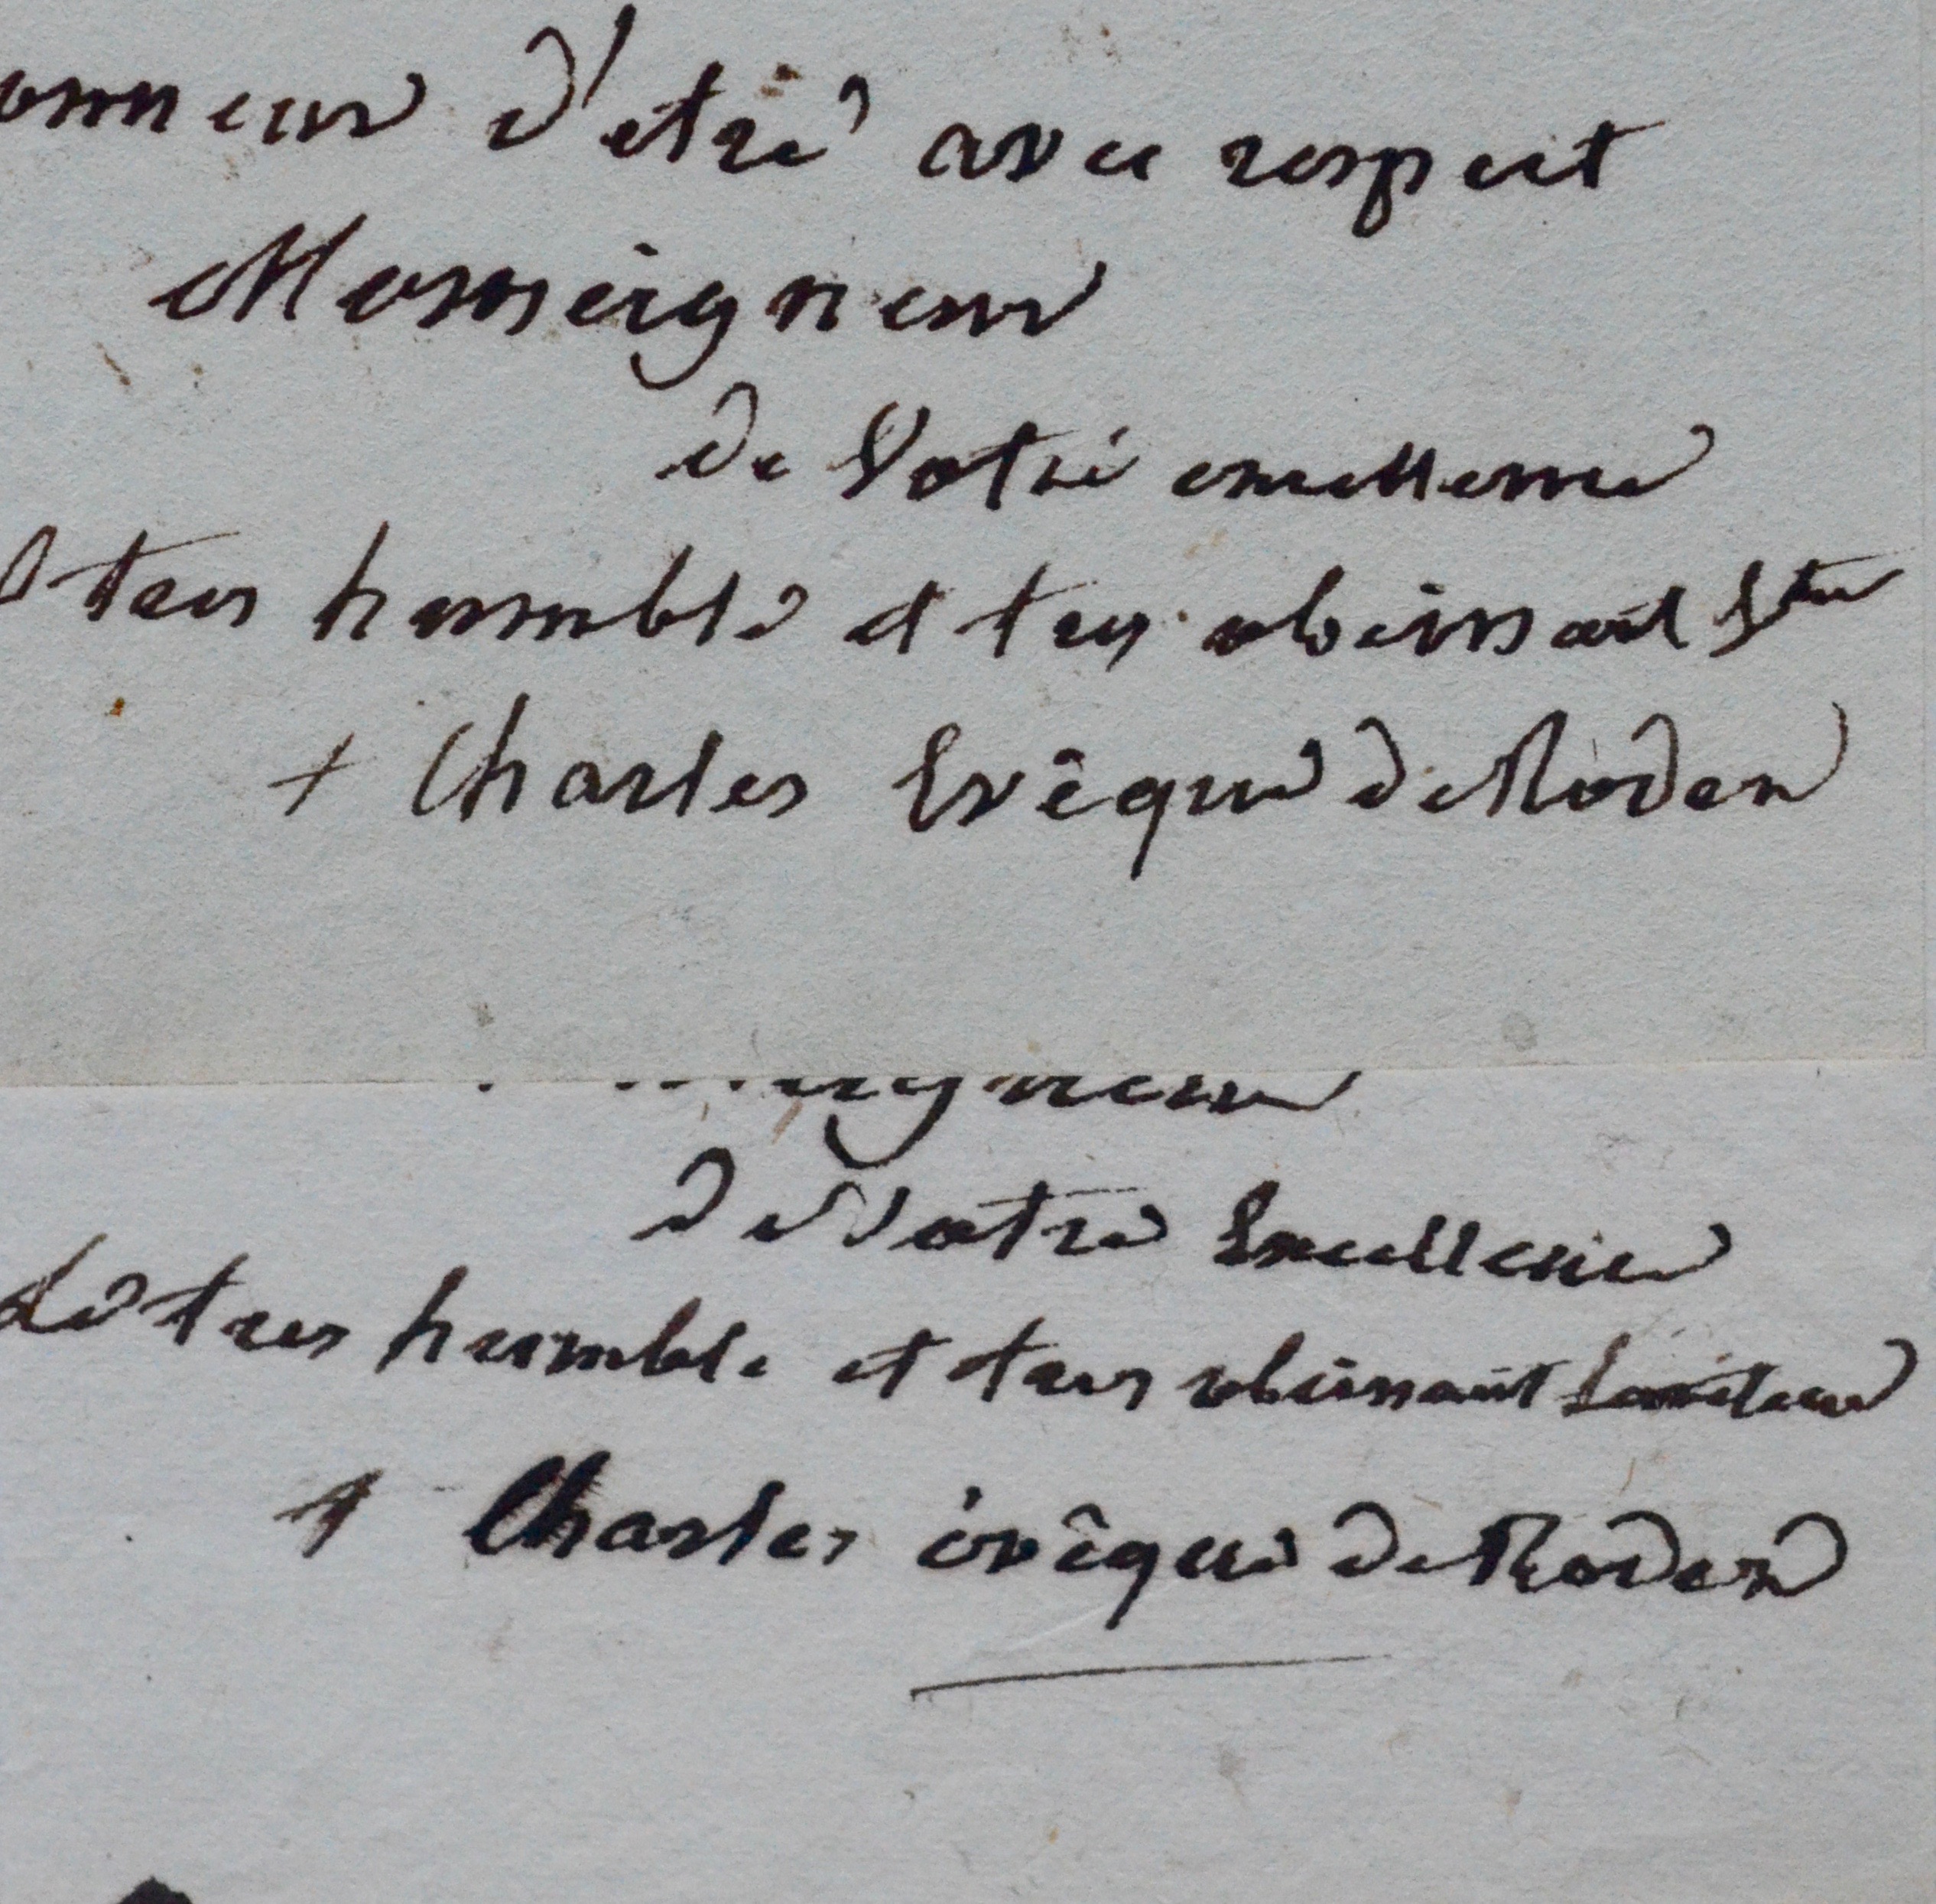 onneur d'etre avec respect
Monseigneur
de Votre excellence
tres humble et tres obeissant Steur
+ Charles Evêque de Rodez
de Votre Excellence
Le tres humble et tres obeissant Serviteur
+ Charles évêque de Rodez